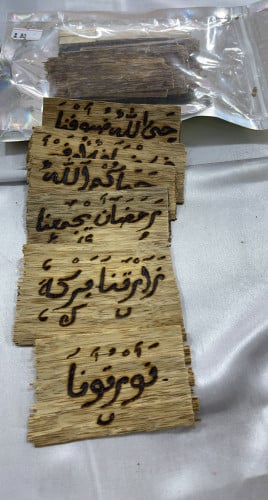 حيَّ اللَّهُ ضيوفنا
حياكم اللَّهُ
رمضان يجمعنا
زارتنا بركة
نورتونا